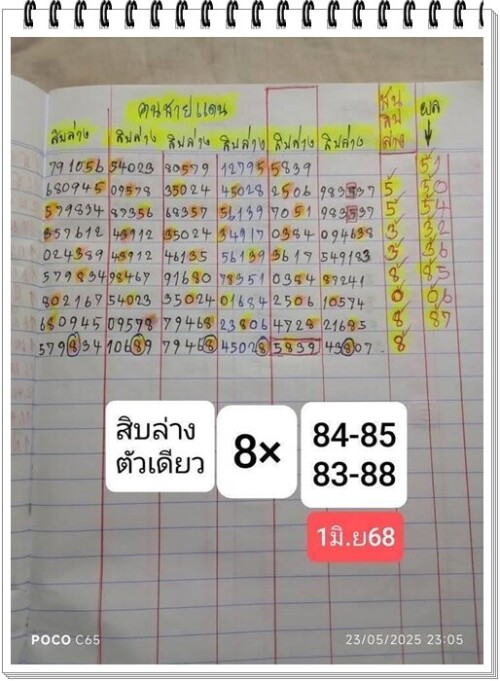 คนสายแดน
สิบล่าง สิบล่าง สิบล่าง สิบล่าง สิบล่าง สิบล่าง
สน สิบ ล่าง
ผล
791056 54023 80579 12795 5839 51
680945 09578 35024 45028 2506 983537 5 50
579834 87356 68357 56139 7051 983537 5 54
357612 43912 35024 34917 0384 094638 3 32
024389 43912 46135 56139 3617 549183 3 36
579834 98467 91680 78351 0384 87241 8 85
802167 54023 35024 01684 2506 10574 0 06
680945 09578 79468 23806 4728 21685 8 87
579834 10689 79468 45028 5839 43807 8
สิบล่าง
ตัวเดียว
8×
84-85
83-88
1มิ.ย68
POCO C65
23/05/2025 23:05